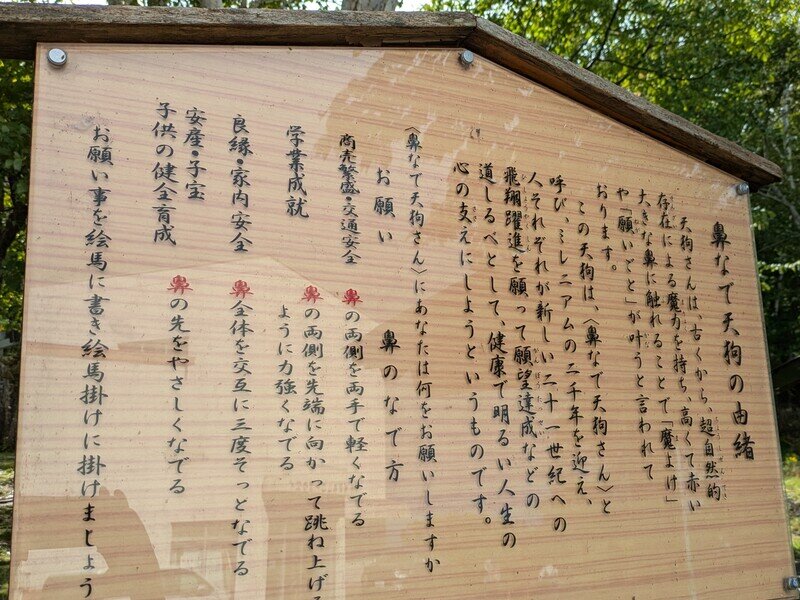 鼻なで天狗の由緒
天狗さんは、古くから、超自然的
存在による魔力を持ち、高くて赤い
大きな鼻に触れることで「魔よけ」
や「願いごと」が叶うと言われて
おります。
この天狗は、〈鼻なで天狗さん〉と
呼び、ミレニアムの二千年を迎え、
人それぞれが新しい二十一世紀への
飛翔躍進を願って願望達成などの
道しるべとして、健康で明るい人生の
心の支えにしようというものです。
〈鼻なで天狗さん〉にあなたは何をお願いしますか
お願い 鼻のなで方
商売繁盛・交通安全 鼻の両側を両手で軽くなでる
学業成就 鼻の両側を先端に向かって跳ね上げる
ように力強くなでる
良縁・家内安全 鼻全体を交互に三度そっとなでる
安産・子宝
子供の健全育成 鼻の先をやさしくなでる
お願い事を絵馬に書き絵馬掛けに掛けましょう